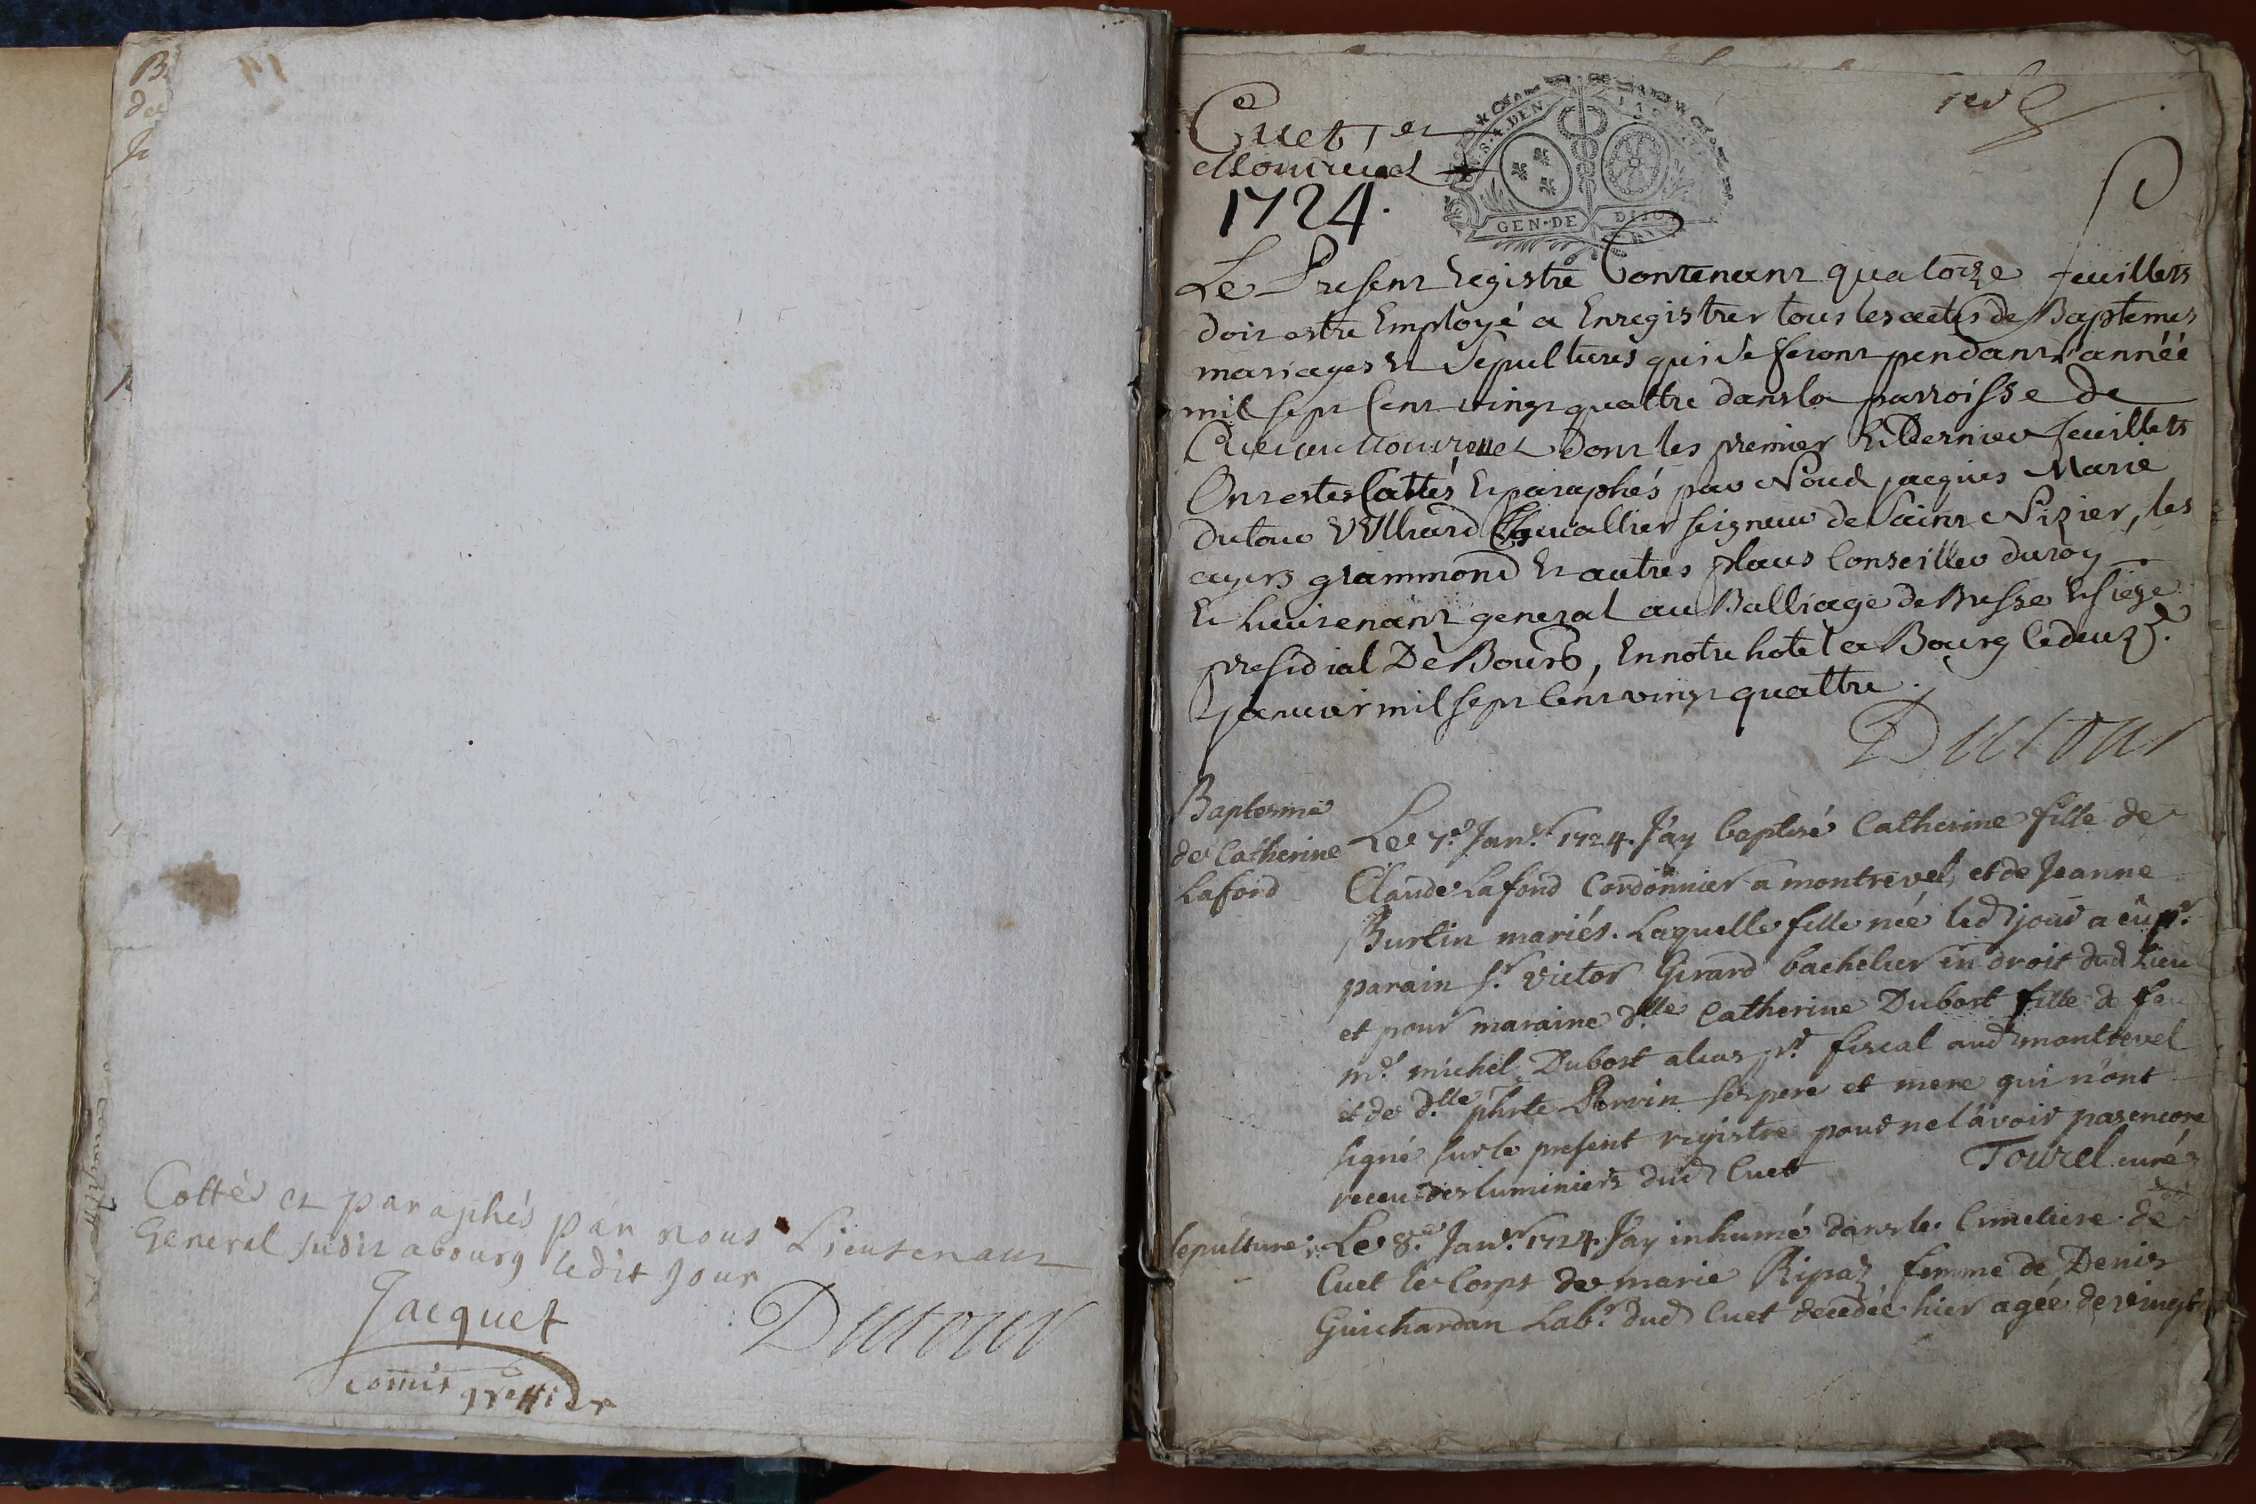 Cottés et paraphés par nous Lieutenant
General susdit a bourg ledit Jour
Jacquet
Dutour
commis greffier
Cuet et
Montrevel
1724.
1er
GEN-DE DIJON
Le Present Registre Contenant quatorze feuillets
doit estre Employé a Enregistrer tous les actes de Baptemes
mariages et Sepultures qui se feront pendant l'année
mil sept Cent vingt quattre dans la parroisse de
Cuet montrevel dont les premier et Dernier feuillets
Ont estes Cottés et paraphés par Nous jacques Marie
dutour Vulliard Chevallier seigneur de Saint Nizier, les
grammond et autres places Conseiller du roy
Et Lieutenant general au Balliage de Bresse et siege
presidial De Bourg, En notre hotel a Bourg le deuxe.
Janvier mil sept Cent vingt quattre.
Dutour
Baptesme
de Catherine
Lafond
Le 7e. Janr. 1724. J'ay baptisé Catherine fille de
Claude Lafond Cordonnier a montrevel, et de Jeanne
Burtin mariés. Laquelle fille née led jour a eu pr.
parain sr. Victor Girard bachelier en droit dud Lieu
et pour maraine dlle Catherine Dubost fille de fe
me. michel Dubost pr. fiscal aud montrevel
et de dlle phrte Perrin ses pere et mere qui n'ont
signé sur le present registre pour ne l'avoir pas encore
receu des luminiers dud Cuet
Tourel curé
sepulture
Le 8e. Janr. 1724. J'ay inhumé dans le Cimetiere de
Cuet le Corps de marie Ripaz femme de Denis
Guichardan Labr. dud Cuet decedée hier agée de vingt